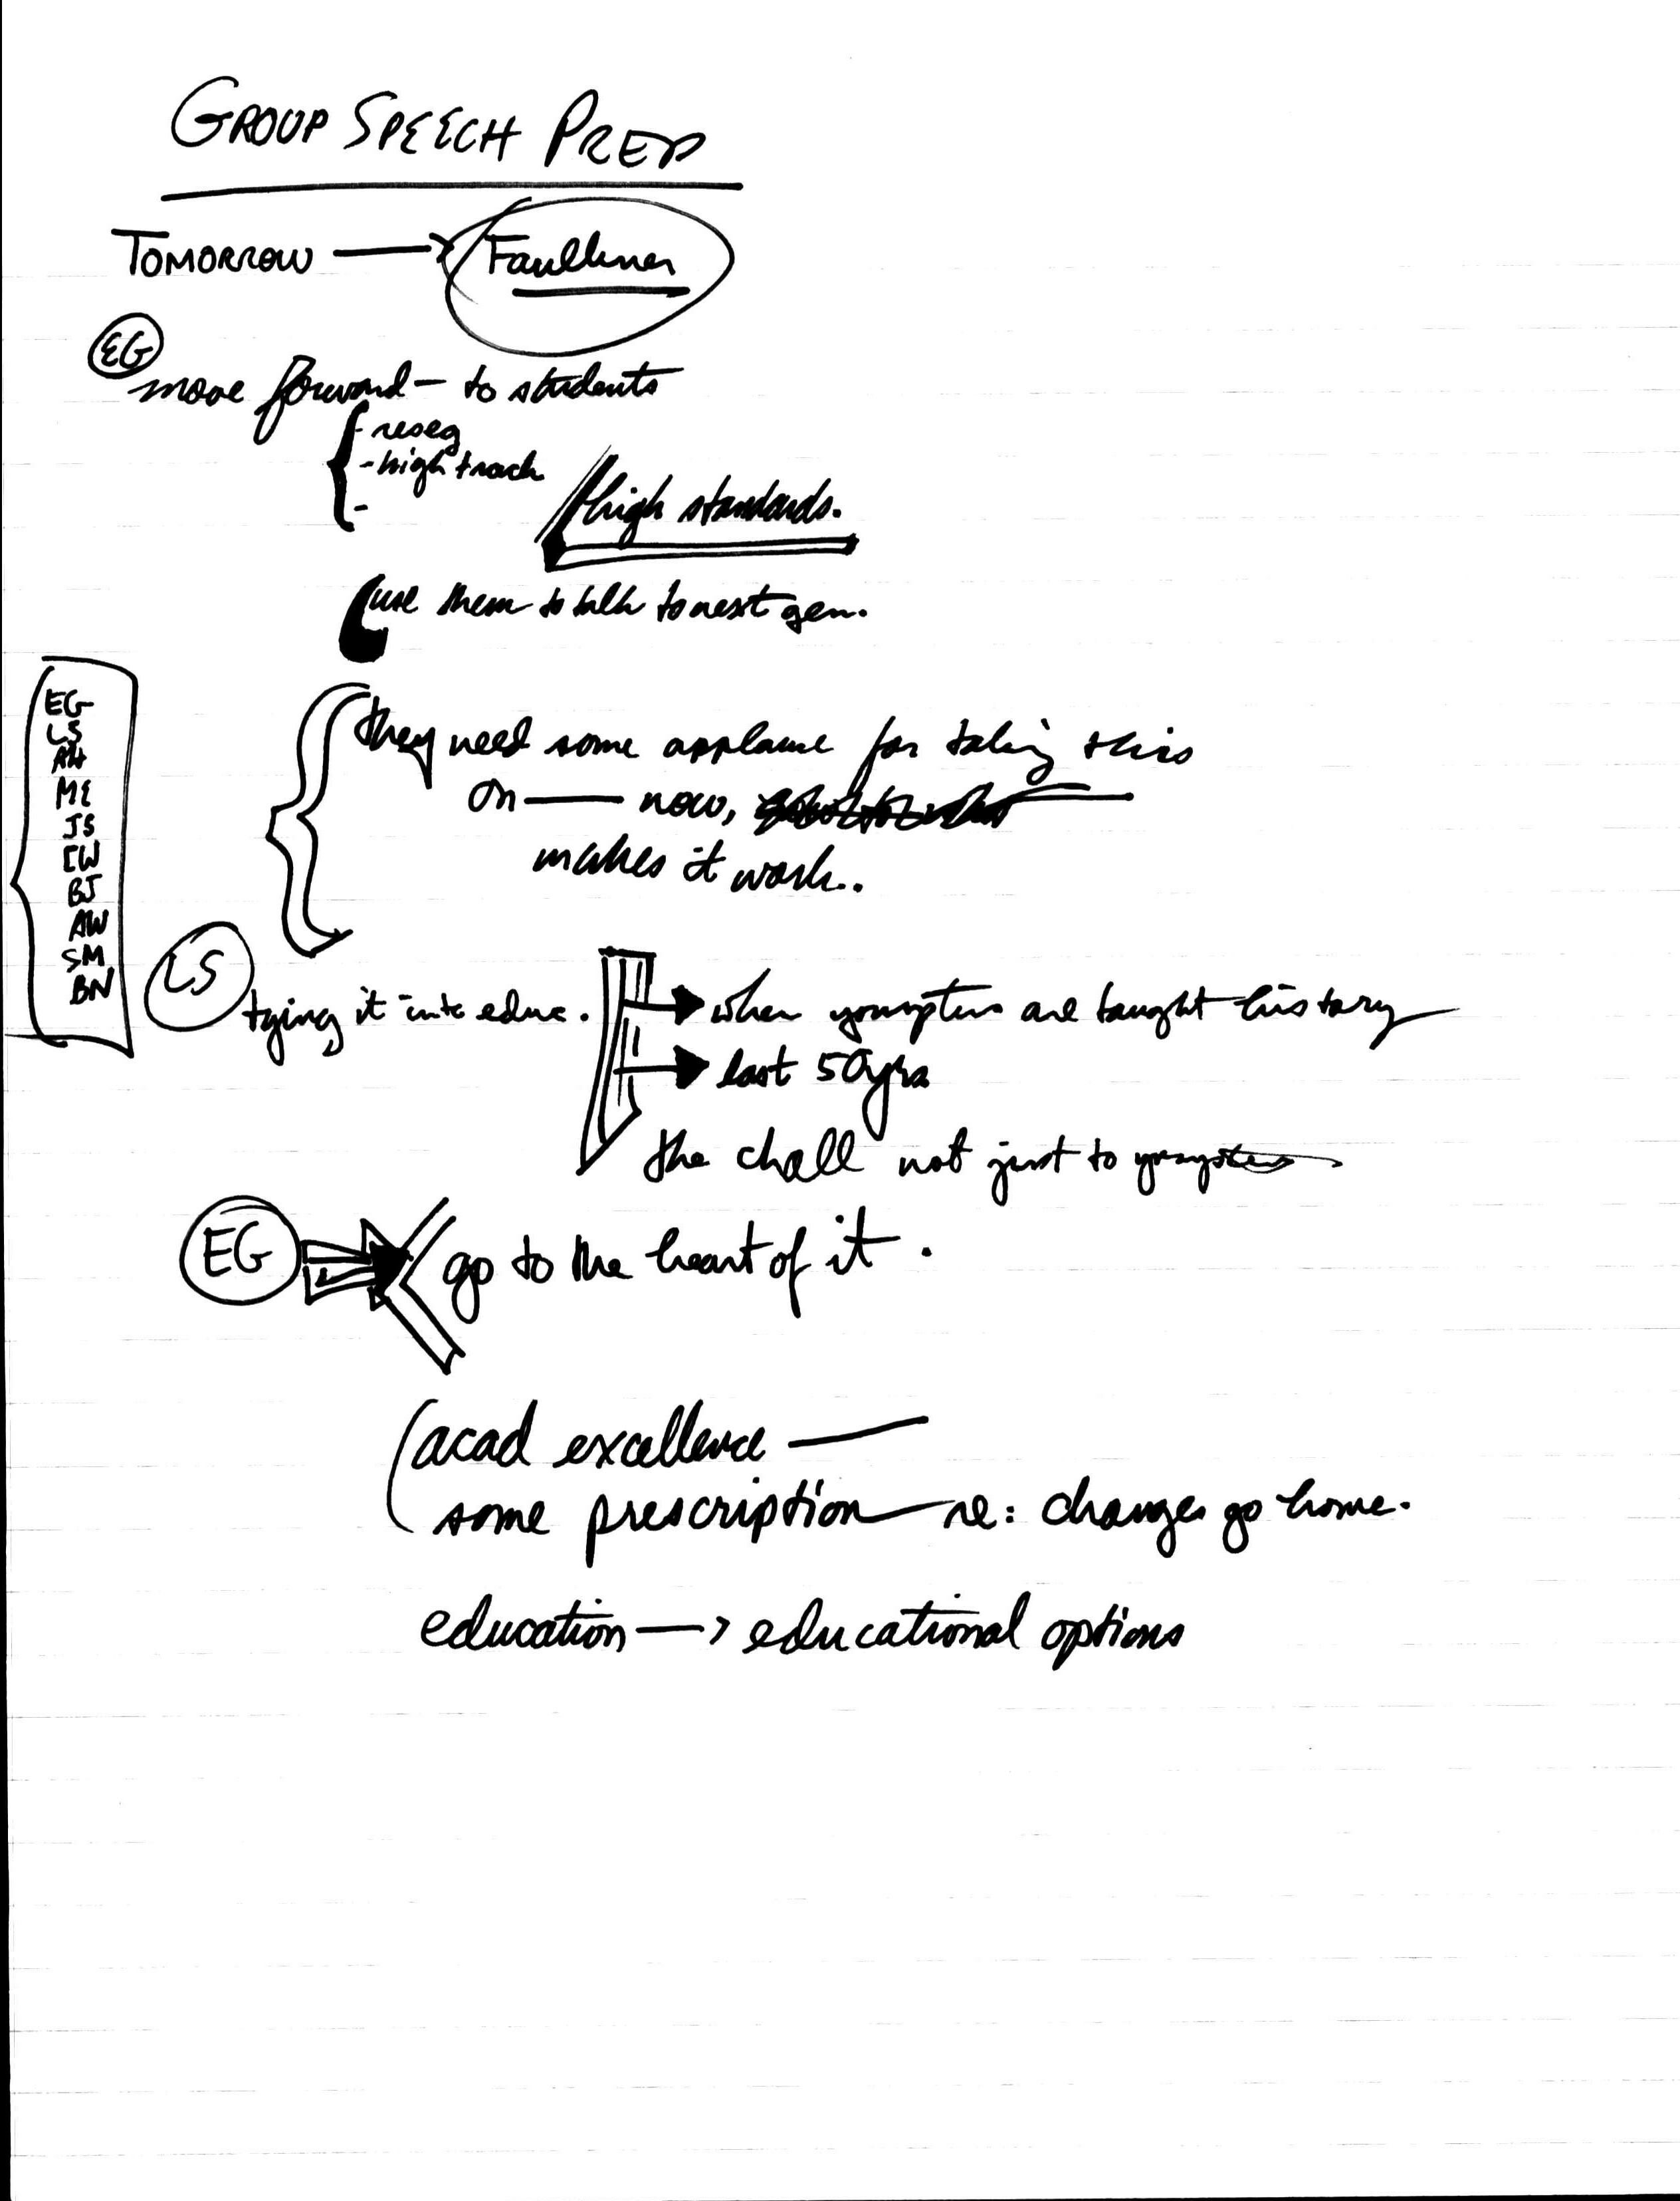 GROUP SPEECH PREP
TOMORROW → Faulkner
EG
move forward - to students
- reseg
- high track
-
high standards.
use them to talk to next gen.
they need some applause for taking this
on — now,
makes it work..
EG
LS
AH
ME
JS
CW
BJ
AW
SM
BN
LS
tying it into educ. → when youngsters are taught history
→ last 50 yrs
the chall not just to youngsters
EG → go to the heart of it.
acad excellence —
some prescription — re: changes go home.
education → educational options